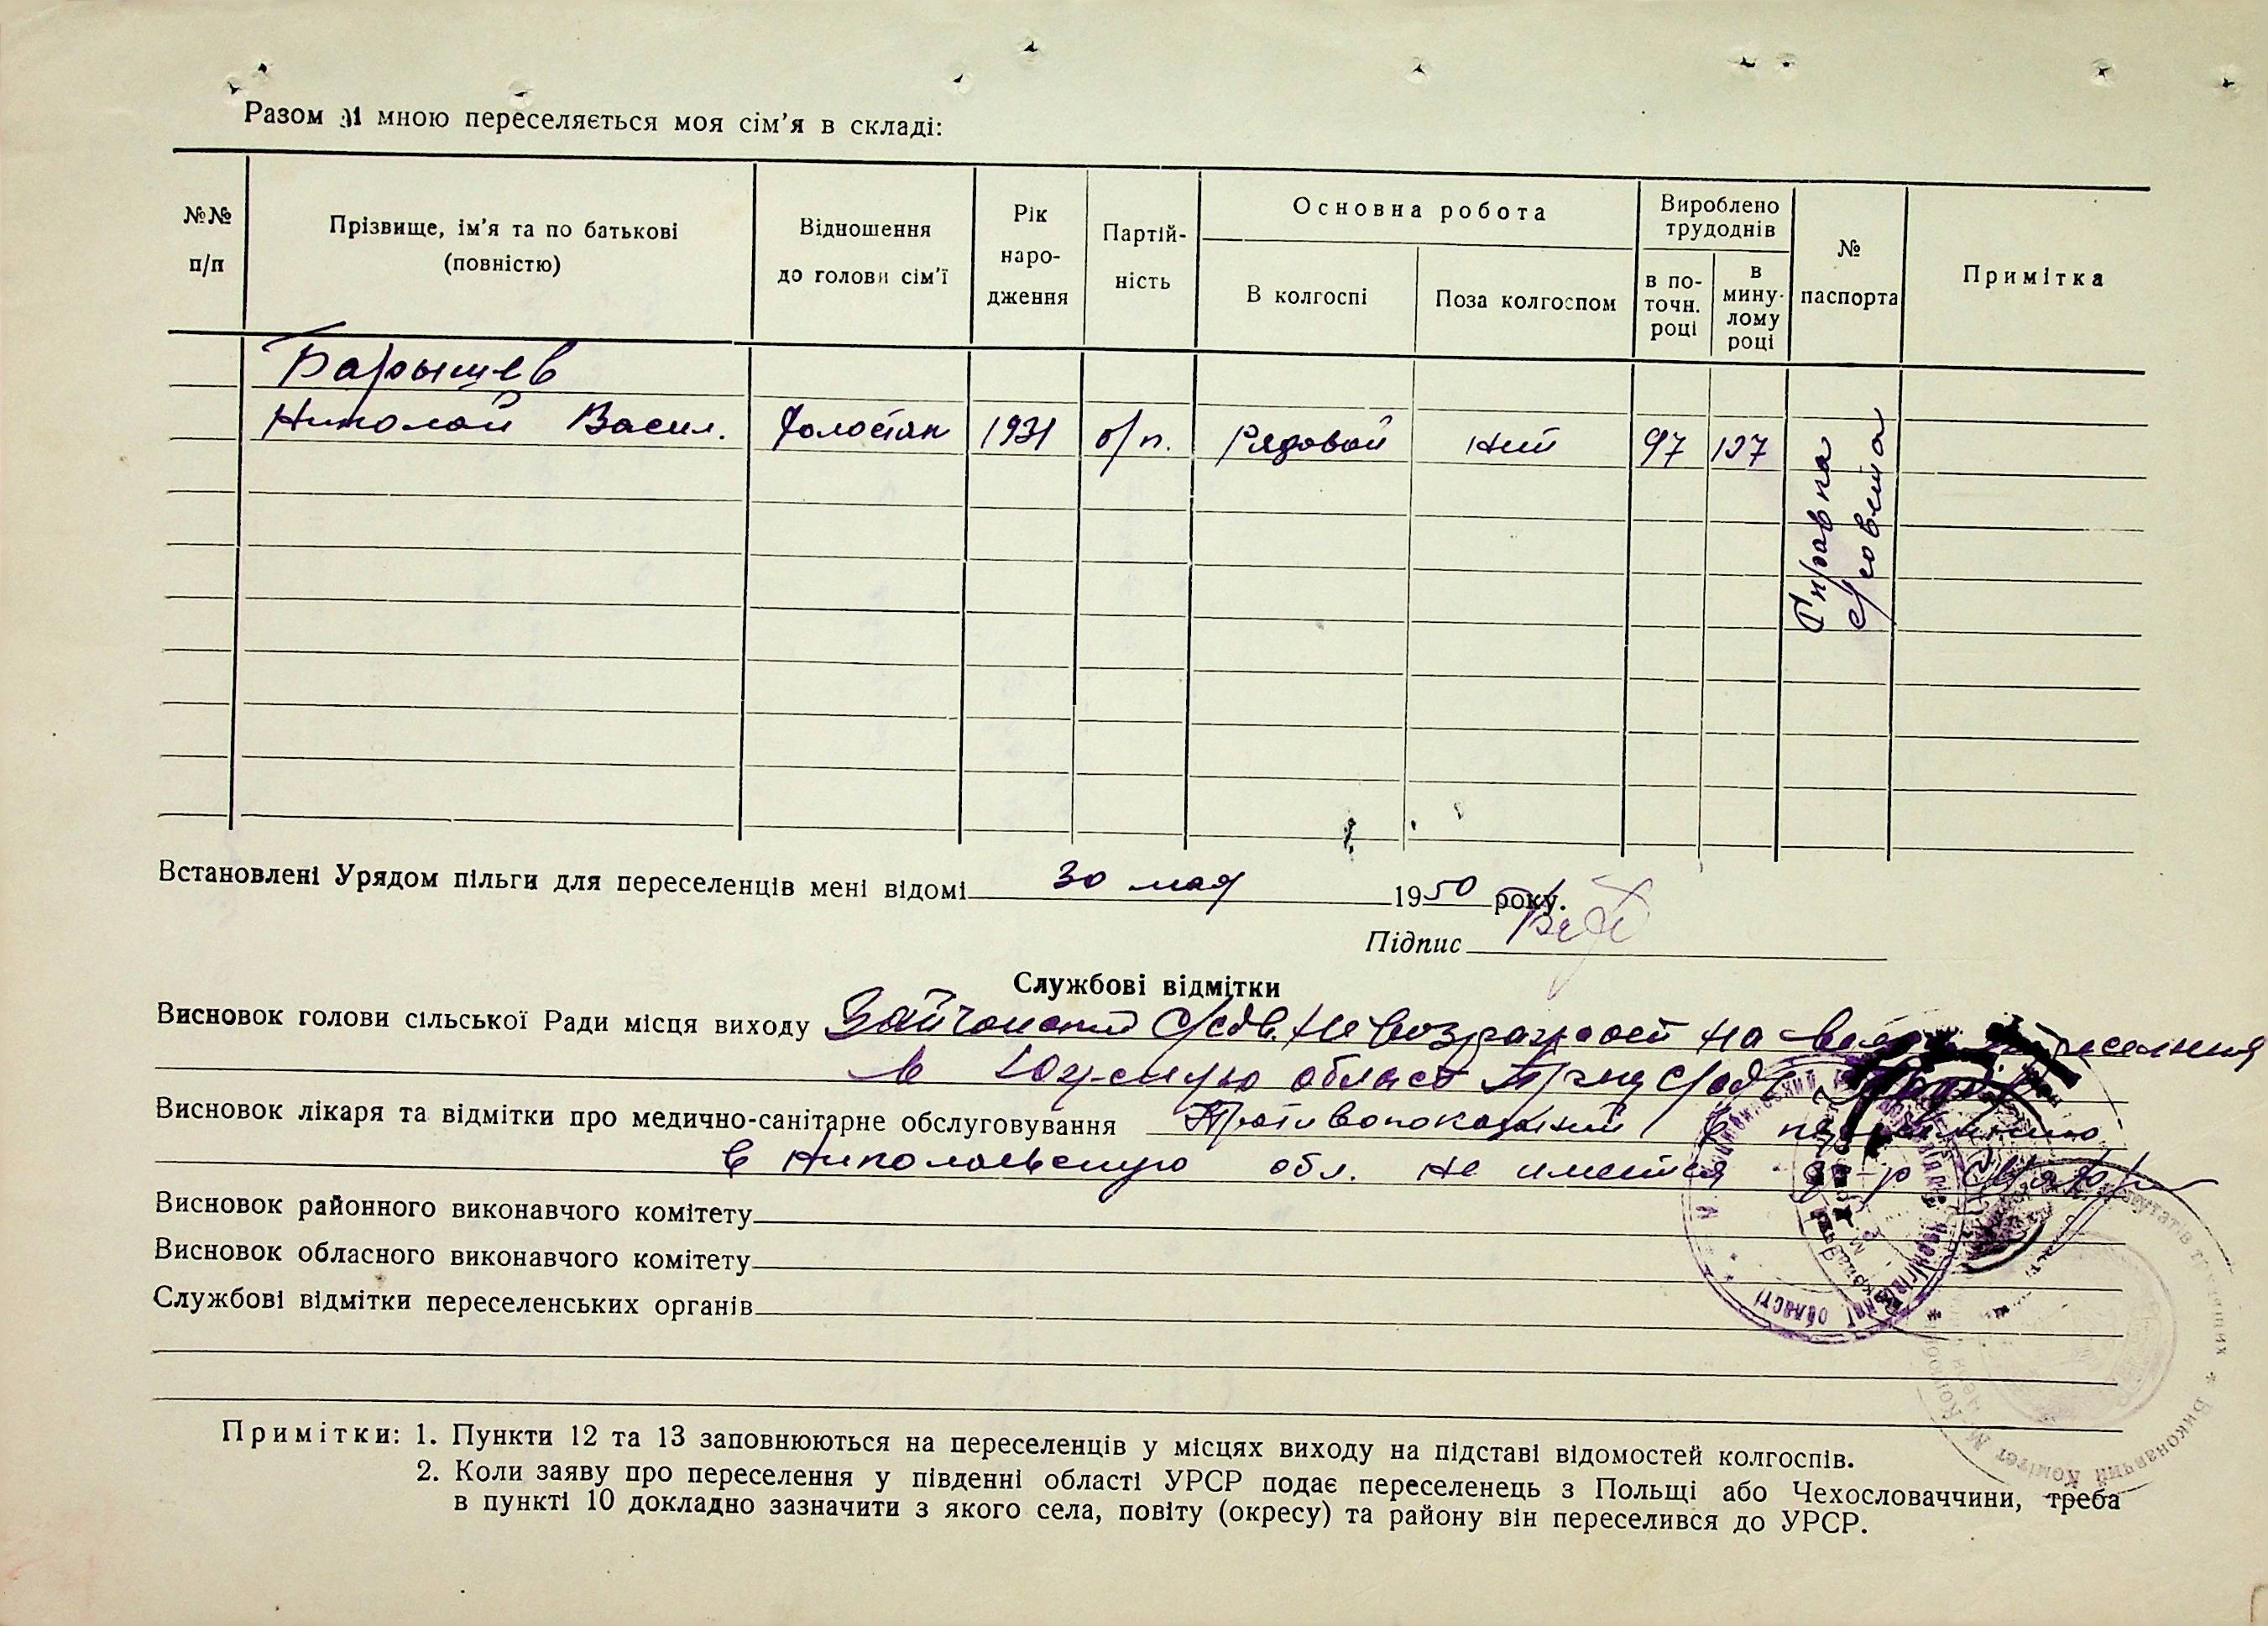 Разом зі мною переселяється моя сім’я в складі:
№№ п/п
Прізвище, ім’я та по батькові (повністю)
Відношення до голови сім’ї
Рік народження
Партійність
Основна робота
В колгоспі
Поза колгоспом
Вироблено трудоднів
в поточн. році
в минулому році
№ паспорта
Примітка
Барышев
Николай Васил. Холостяк 1931 б/п. Рядовой Нет 97 127
Справка с/совета
Встановлені Урядом пільги для переселенців мені відомі 30 мая 1950 року.
Підпис
Службові відмітки
Висновок голови сільської Ради місця виходу не возражает на переселения
в област
Висновок лікаря та відмітки про медично-санітарне обслуговування Противопоказаний к
в Николаевскую обл. не имется д-р
Висновок районного виконавчого комітету
Висновок обласного виконавчого комітету
Службові відмітки переселенських органів
Примітки: 1. Пункти 12 та 13 заповнюються на переселенців у місцях виходу на підставі відомостей колгоспів.
2. Коли заяву про переселення у південні області УРСР подає переселенець з Польщі або Чехословаччини, треба
в пункті 10 докладно зазначити з якого села, повіту (окресу) та району він переселився до УРСР.